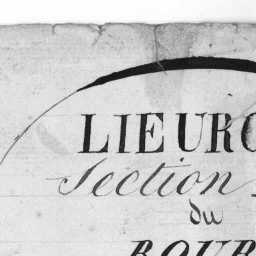 LIEURO
Section
du
BOUR